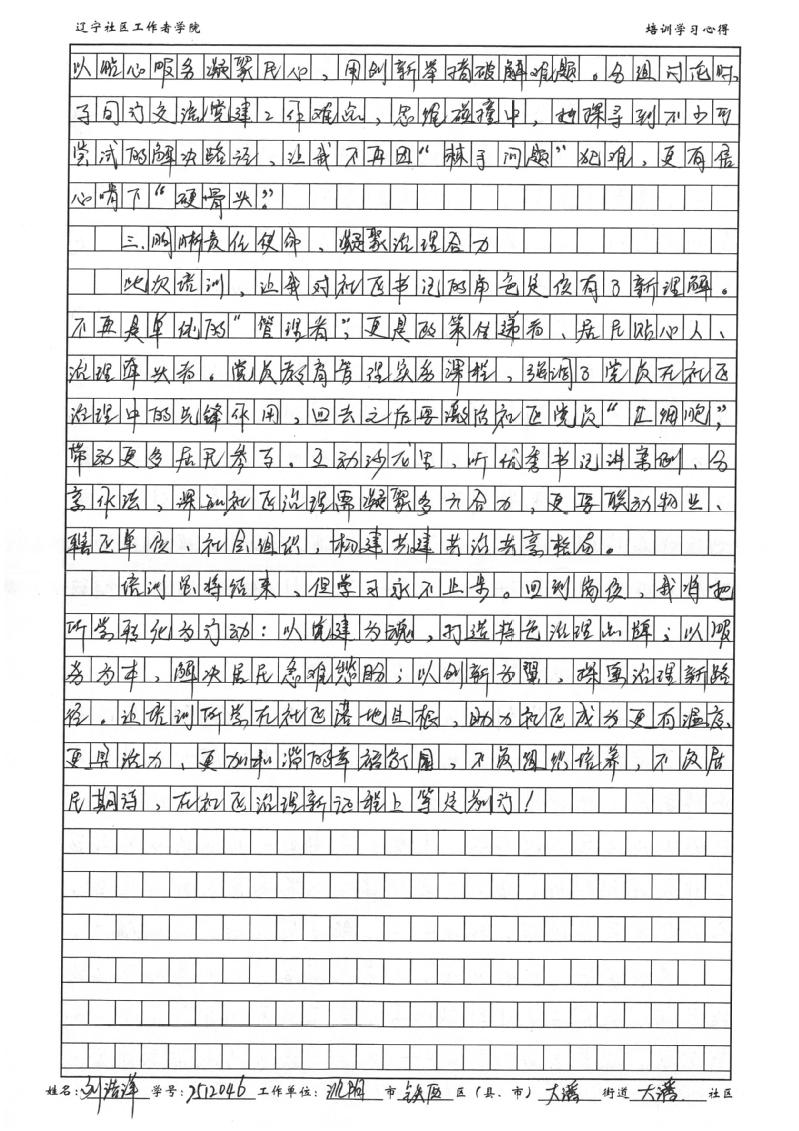 辽宁社区工作者学院 培训学习心得
以贴心服务凝聚民心，用创新举措破解难题。分组讨论时，
学员们交流党建工作难点，思维碰撞中，也探寻到不少可
尝试的解决路径，让我不再因“棘手问题”犯难，更有信
心啃下“硬骨头”。
三、明晰责任使命，凝聚治理合力
此次培训，让我对社区书记的角色定位有了新理解。
不再是单纯的“管理者”，更是政策传递者、居民贴心人、
治理牵头者。党员教育管理实务课程，强调了党员在社区
治理中的先锋作用，回去之后要激活社区党员“红细胞”，
带动更多居民参与。互动沙龙里，听优秀书记讲案例、分
享做法，深知社区治理需凝聚多方合力，更要联动物业、
辖区单位、社会组织，构建共建共治共享格局。
培训虽将结束，但学习永不止步。回到岗位，我将把
所学转化为行动：以党建为魂，打造特色治理品牌；以服
务为本，解决居民急难愁盼；以创新为翼，探索治理新路
径。让培训所学在社区落地生根，助力社区成为更有温度、
更具活力、更加和谐的幸福家园，不负组织培养，不负居
民期待，在社区治理新征程上笃定前行！
姓名：刘浩洋 学号：2512046 工作单位：沈阳 市 铁西 区（县、市） 大潘 街道 大潘 社区